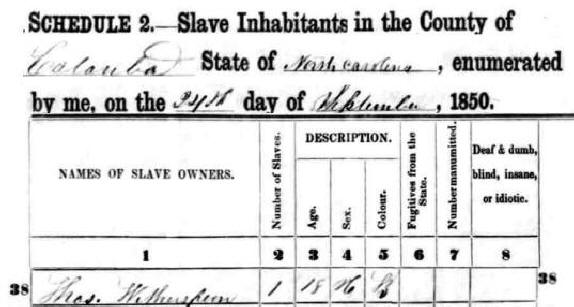 SCHEDULE 2.—Slave Inhabitants in the County of
Catawba State of North Carolina, enumerated
by me, on the 24th day of September, 1850.
NAMES OF SLAVE OWNERS.
Number of Slaves.
DESCRIPTION.
Age.
Sex.
Colour.
Fugitives from the State.
Number manumitted.
Deaf & dumb,
blind, insane,
or idiotic.
1 2 3 4 5 6 7 8
38 Thos. Witherspoon 1 18 B 38